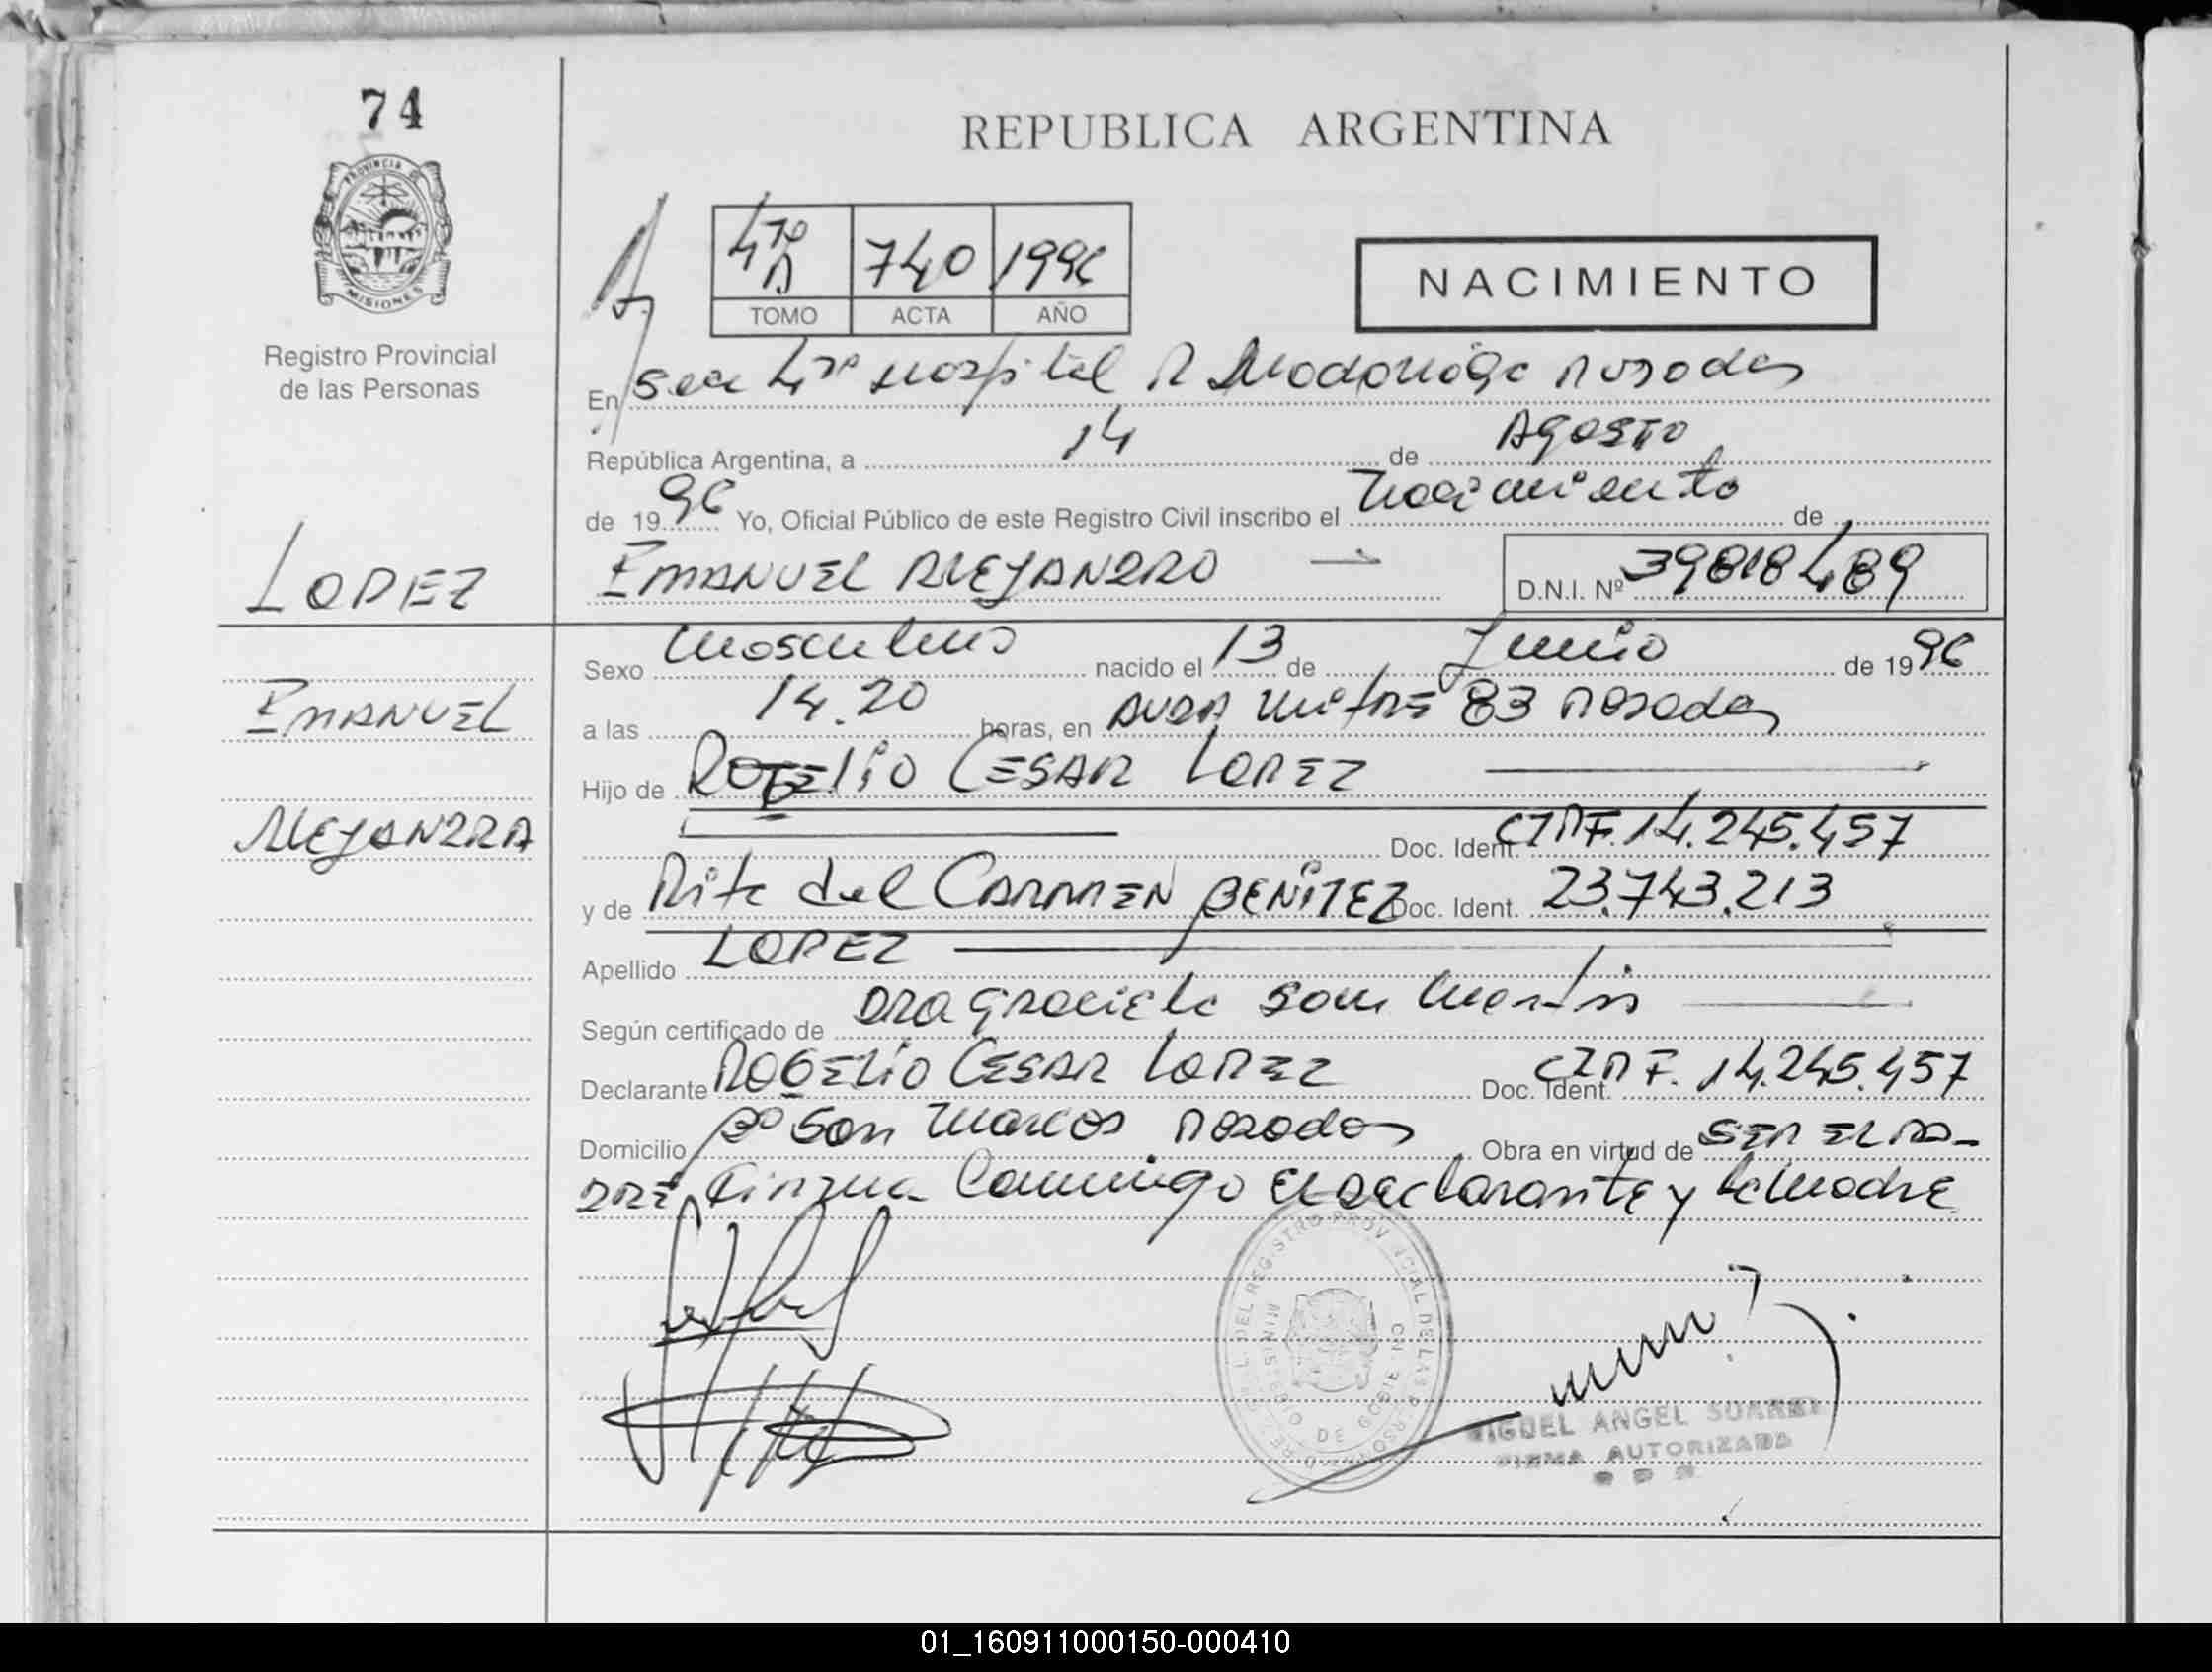 74
REPUBLICA ARGENTINA
PROVINCIA DE
MISIONES
Registro Provincial
de las Personas
4to A 740 1996
TOMO ACTA AÑO
NACIMIENTO
En Secc 4ta Hospital R Madariaga Posadas
República Argentina, a 14 de Agosto
de 1996 Yo, Oficial Público de este Registro Civil inscribo el nacimiento de
LOPEZ
EMANUEL ALEJANDRO
D.N.I. Nº 39818489
EMANUEL
ALEJANDRA
Sexo masculino nacido el 13 de Junio de 1996
a las 14.20 horas, en AVDA mitre 83 Posadas
Hijo de ROGELIO CESAR LOPEZ
Doc. Ident. CIPF. 14.245.457
y de Rita del CARMEN BENITEZ Doc. Ident. 23.743.213
Apellido LOPEZ
Según certificado de DRA Graciela San Martin
Declarante ROGELIO CESAR LOPEZ Doc. Ident. CIPF. 14.245.457
Domicilio Bº San Marcos Posadas Obra en virtud de SER EL PA-
DRE, Firman Conmigo El declarante y la Madre
MIGUEL ANGEL SUAREZ
FIRMA AUTORIZADA
01_160911000150-000410